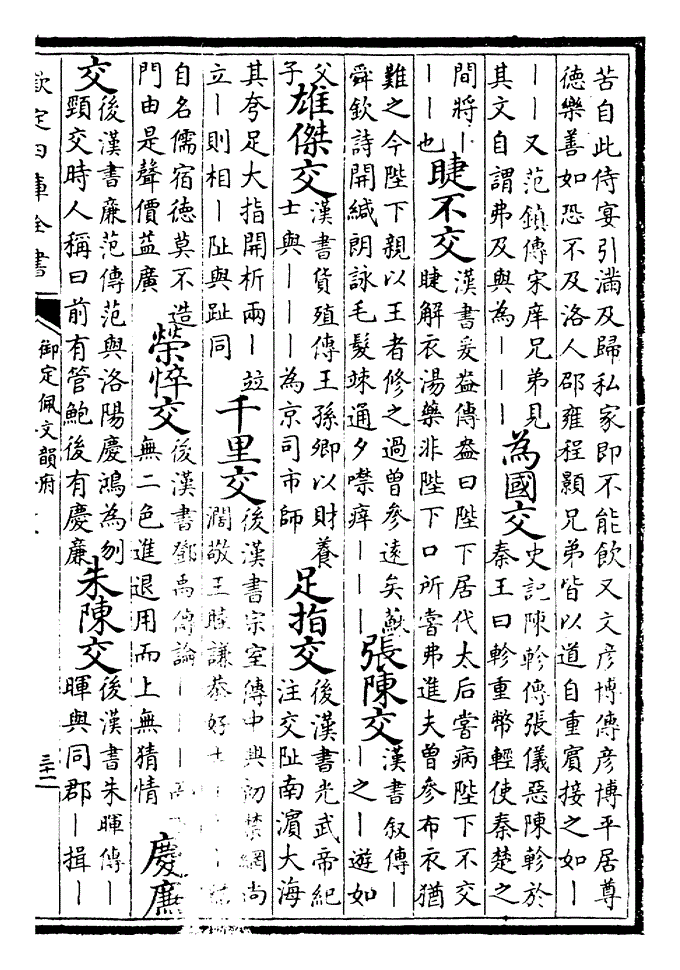 苦自此侍宴引滿及歸私家即不能飲又文彥博傳彥博平居尊
德樂善如恐不及洛人邵雍程顥兄弟皆以道自重賓接之如丨
丨丨又范鎮傳宋庠兄弟見
其文自謂弗及與為丨丨丨
為國交
史記陳軫傳張儀惡陳軫於
秦王曰軫重幣輕使秦楚之
間將丨
丨丨也
睫不交
漢書爰盎傳盎曰陛下居代太后嘗病陛下不交
睫解衣湯藥非陛下口所嘗弗進夫曾參布衣猶
難之今陛下親以王者修之過曾參遠矣蘇
舜欽詩開緘朗詠毛髮竦通夕噤痒丨丨丨
張陳交
漢書叙傳丨
丨之丨遊如
父
子
雄傑交
漢書貨殖傳王孫卿以財養
士與丨丨丨為京司市師
足指交
後漢書光武帝紀
注交阯南濵大海
其夸足大指開析兩丨竝
立丨則相丨阯與趾同
千里交
後漢書宗室傳中興初禁網尚
濶敬王睦謙恭好士
自名儒宿德莫不造
門由是聲價益廣
榮悴交
後漢書鄧禹傳論丨丨丨丨
無二色進退用而上無猜情
慶廉
交
後漢書廉范傳范與洛陽慶鴻為刎
頸交時人稱曰前有管鮑後有慶廉
朱陳交
後漢書朱暉傳丨
暉與同郡丨揖丨
欽定四庫全書
御定佩文韻府
三十二